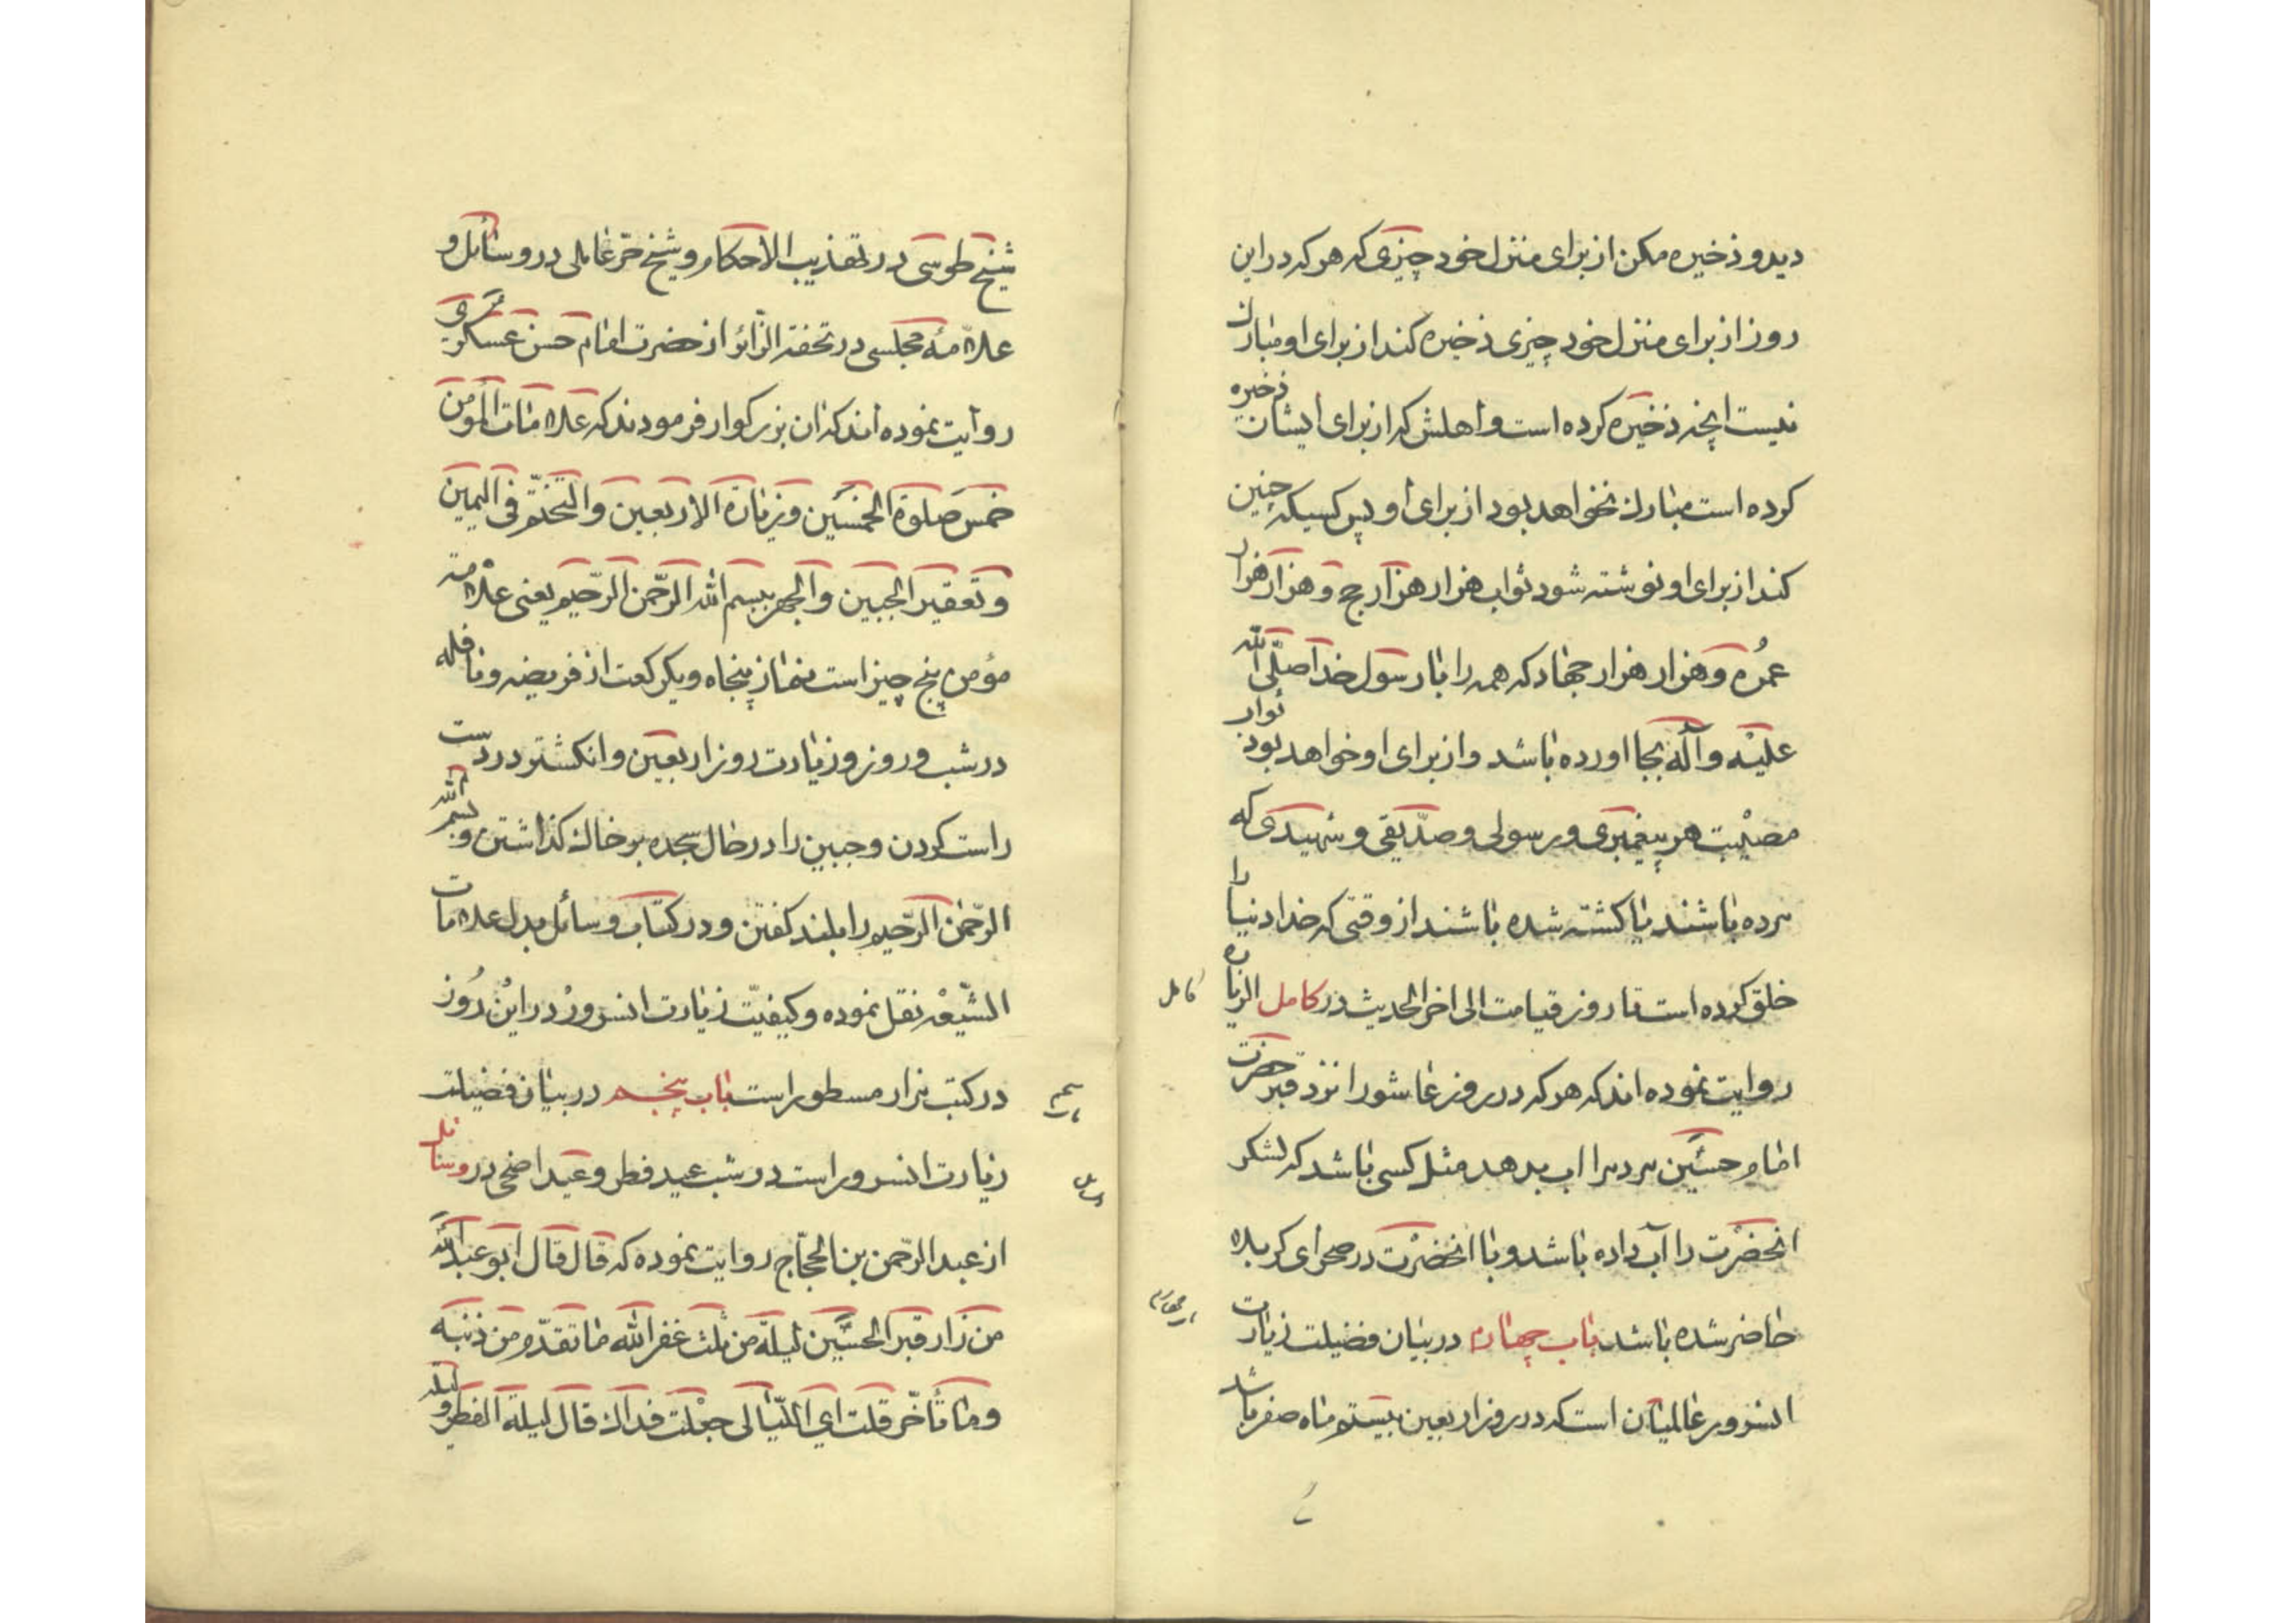 دید و ذخیره مکن از برای منزل خود چیزی که هر که در این
روز از برای منزل خود چیزی ذخیره کند از برای او مبارک
نیست انچه ذخیره کرده است و اهلش که از برای ایشان ذخیره
کرده است مبارک نخواهد بود از برای او پس کسیکه چنین
کند از برای او نوشته شود ثواب هزار هزار حج و هزار هزار
عمُره و هزار هزار جهاد که همه را با رسول خدا صلّی الله
علیْه و آله بجا اورده باشد و از برای او خواهد بود ثواب
مصیْبت هر پیغمبری و رسولی و صدّیقی و شهیدی که
مرده باشند یا کشته شده باشند از وقتی که خدا دنیا را
خلق کرده است تا روز قیامت الی اخر الحدیث در کامل الزیاره
کامل
روایت نموده اند که هر که در روز عاشورا نزد قبر حضرت
امام حسین مردمرا اب بدهد مثل کسی باشد که لشکر
انحضرْت را آب داده باشد و با انحضرْت در صحرای کربلا
حاضر شده باشد باب چهارم در بیان فضیلت زیارت
انسرور عالمیان است که در روز اربعین بیستم ماه صفر باشد
شیخ طوسی در تهذیب الاحکام و شیخ حرّ عاملی در وسائل و
علاّمه مجلسی در تحفة الزّائر از حضرت امام حسن عسکری
روایت نموده اند که ان بزرکوار فرمودند که علامات المؤمن
خمس صلوة الخمسین و زیارة الاربعین والتختّم فی الیمین
و تعفیر الجبین والجهر ببسم الله الرّحمن الرّحیم یعنی علامت
مؤمن پنج چیز است نماز پنجاه و یک رکعت از فریضه و نافله
در شب و روز و زیارت روز اربعین و انکشتر در دست
راست کردن و جبین را در حال سجده بر خاک کذاشتن و بسم الله
الرّحمن الرّحیم را بلند کفتن و در کتاب وسائل بدل علامات
الشّیْعه نقل نموده و کیفیّت زیارت انسرورْ در ایْن رُوز
در کتب مزار مسطور است باب پنجم در بیان فضیلت
زیارت انسرور است در شب عید فطر و عید اضحی در وسائل
وسائل
از عبد الرّحمن بن الحجّاج روایت نموده که قال قال ابو عبد الله
من زار قبر الحسین لیلة من ثلث غفر الله ما تقدّم من ذنبه
و ما تأخّر قلت ای اللّیالی جعْلت فداک قال لیلة الفطر و لیلة